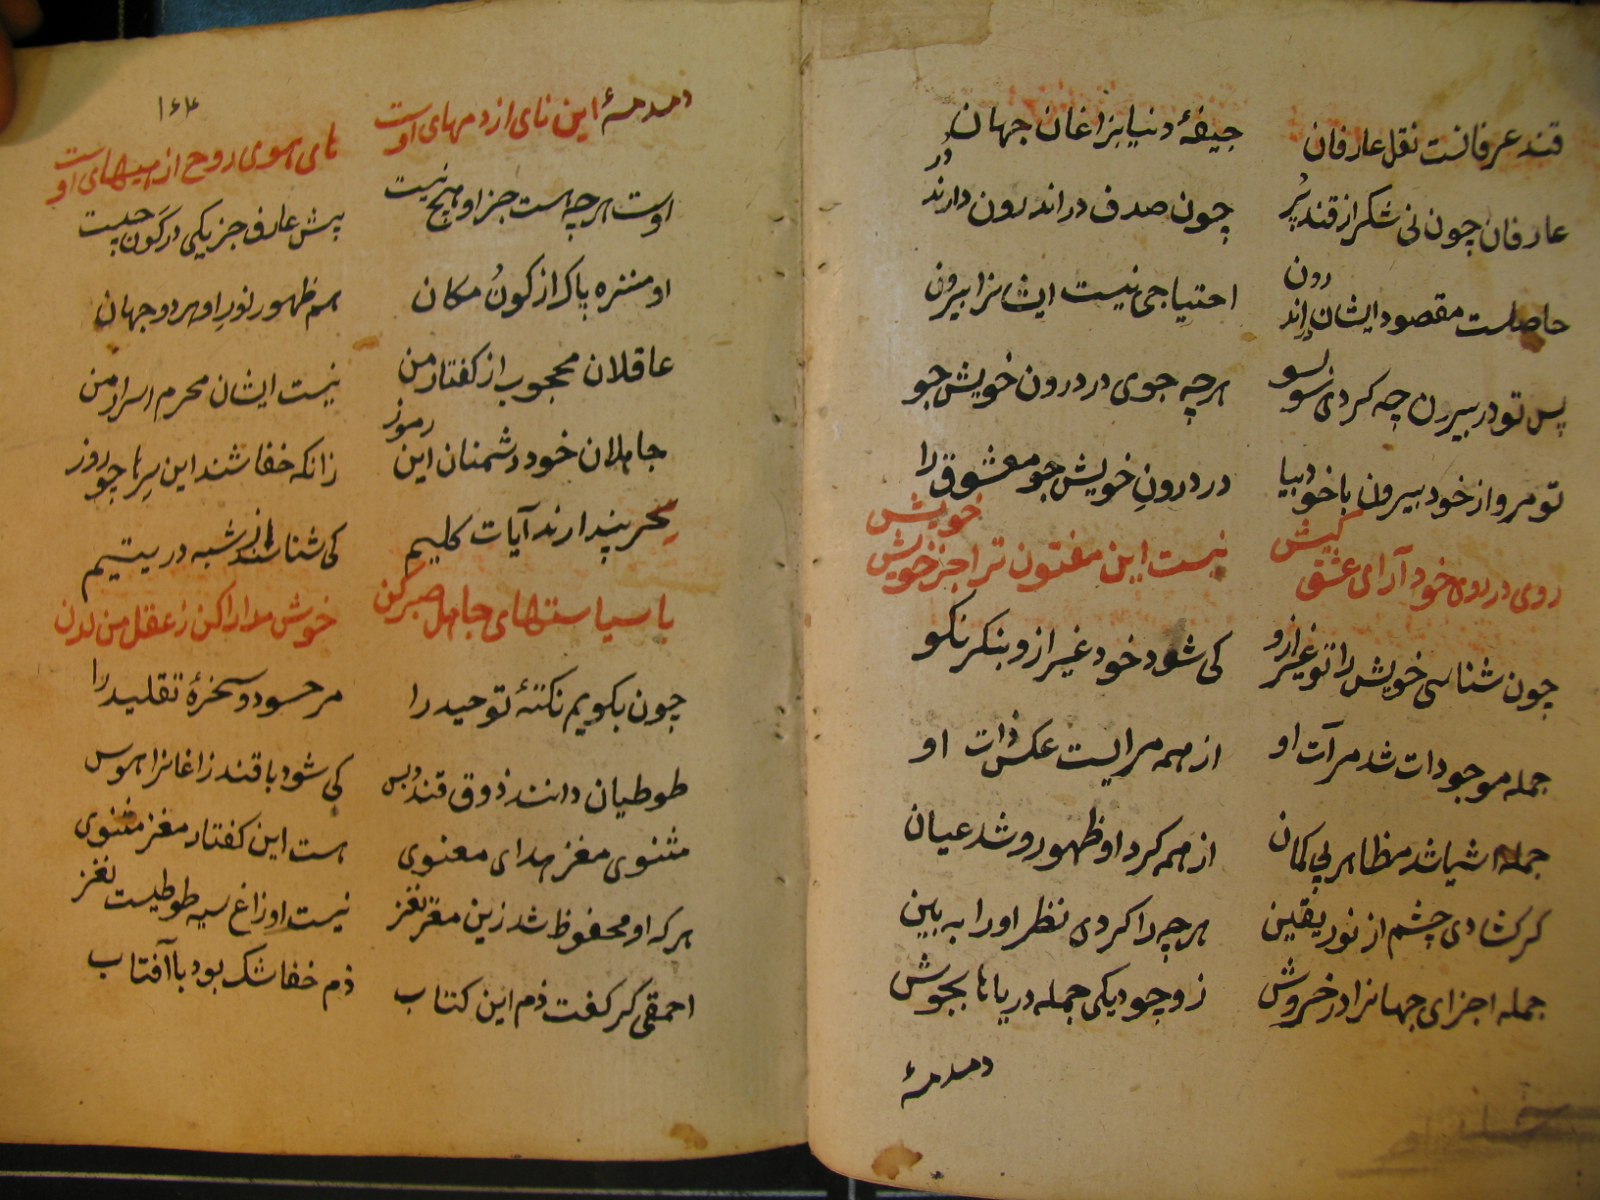 قند عرفانست نقل عارفان جیفهٔ دنیا بزاغان جهان
عارفان چون نی شکر از قند پُر چون صدف در اندرون دارند دُر
حاصلست مقصود ایشان در اندرون احتیاجی نیست ایشانرا بیرون
پس تو در بیرون چه کردی سو بسو هر چه جوی در درون خویش جو
تو مرو از خود بیرون با خود بیا در درونِ خویش جو معشوق را
روی در روی خود آر ای عشق کیش نیست این مفتون ترا جز خویش خویش
چون شناسی خویش را تو غیر ازو کی شود خود غیر ازو بنکر نکو
جمله موجودات شد مرآت او از همه مراییست عکس ذات او
جمله اشیا شد مظاهر بی کمان از همه کرد او ظهور و شد عیان
کر کشادی چشم از نور یقین هر چه را کردی نظر او را به بین
جمله اجزای جهانرا در خروش ز وجود یکی جمله دریاها بجوش
دمدمهٔ
۱۶۴
دمدمهٔ این نای از دمهای اوست های هوی روح از هیهای اوست
اوست هر چه هست جز او هیچ نیست پیش عارف جز یکی در کَون چیست
او منزه پاک از کونُ مکان هم ظهور نورِ او هر دو جهان
عاقلان محجوب از کفتار من نیست ایشان محرم اسرار من
جاهلان خود دشمنان این رموز زانکه خفاشند این سِرها چو روز
سِحر پندارند آیات کلیم کی شناسند از شبه در یتیم
با سیاستهای جاهل صبر کن خوش مدارا کن ز عقل من لدن
چون بکویم نکتهٔ توحید را مر حسود و سخرهٔ تقلید را
طوطیان دانند ذوق قند و بس کی شود با قند زاغانرا هوس
مثنوی مغز هدای معنوی هست این کفتار مغز مثنوی
هر که او محفوظ شد زین مغز نغز نیست او زاغ سیه طوطیست نغز
احمقی کر کفت ذم این کتاب ذم خفاشک بود با آفتاب